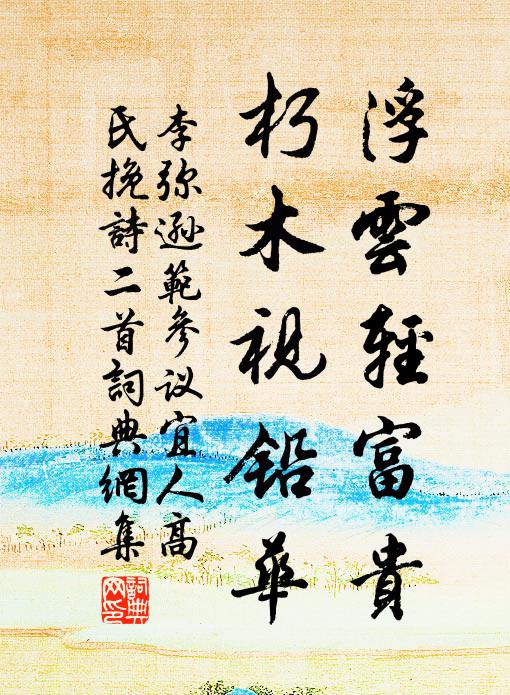 浮雲輕富貴
朽木視鉛華
李弥遜範參议宜人高
氏挽詩二首詞典網集